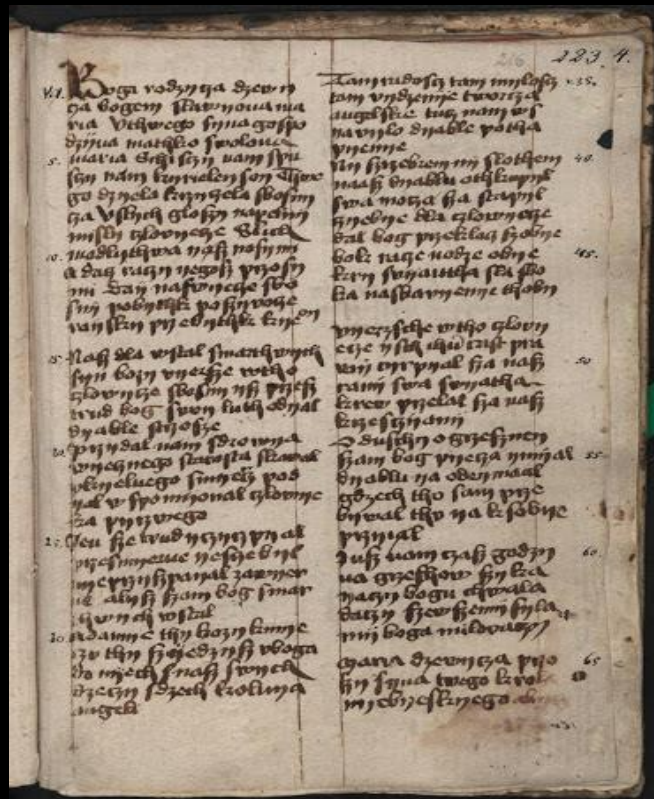 223. 4.
V.1. Boga rodzycza dzewy
cza bogem slawyona ma
ria Vthwego syna gospo
dzyna mathko swolona
5. maria Schisczy nam spu
sczy nam kyrieleyson Thwe
go dzyela krzczyczela sbosny
cza Vslysch glosy napelny
mysly czlowyecze Slisch
10. modlythwa nasz nosymy
A dacz raczy negosz prosy
my day naswyecze sbo
szny pobyth posziwocze
rayski przebyth kyrie
15. Nasz dla wstal smarthwych
syn bozy wyerzye wtho
czlowycze sbosny ysz przesz
trud bog swoy luth odyal
dyable strozse
20. przydal nam sdrowya
wyecznego starosta skowal
pkyelnego smyercz pod
yal wspomyonal czlowye
ka pyrzwego
25. Jen sze trudy czyrpyal
przesmyerne yeszcze byl
nye przyszpyal zawyer
ne alysz szam bog smar
thwych wstal
30. Adamye thy bozy kmye
czy thy szyedzysz vboga
do myesch snasz swych
dzeczy sdzech kroluya
angely
Tam radoscz tam myloscz 35.
tam vydzenye tworcza
angelske tucz nam ws
yavylo dyable potha
pyenye
Ny szrebrem ny slothem 40.
nasz dyablu othkupyl
swa mocza sza stapyl
dla czlowyecze
dal bog przeklocz szobye
bok racze nodze obye 45.
krew swyantha sla sbo
ka nasbawyenye thobye
wyerzsche wtho czlowy
ecze ysz ihu crist pra
wy cyrpyal sza nasz 50
rany swa swyatha
krew przelal sza nasz
krzesczyany
O duschy o grzeszney
szam bog pyecza ymyal 55
dyablu ya odeymal
gdzech tho sam prze
bywal thv ya k sobye
przyial
Jusz nam czasz godzy 60.
na grzechow szy ka
yaczy bogu chwala
daczy szewszemy syla
my boga milowacz
Maria dzewycza pro 65
szy syna twego krola
nyebyeskyego